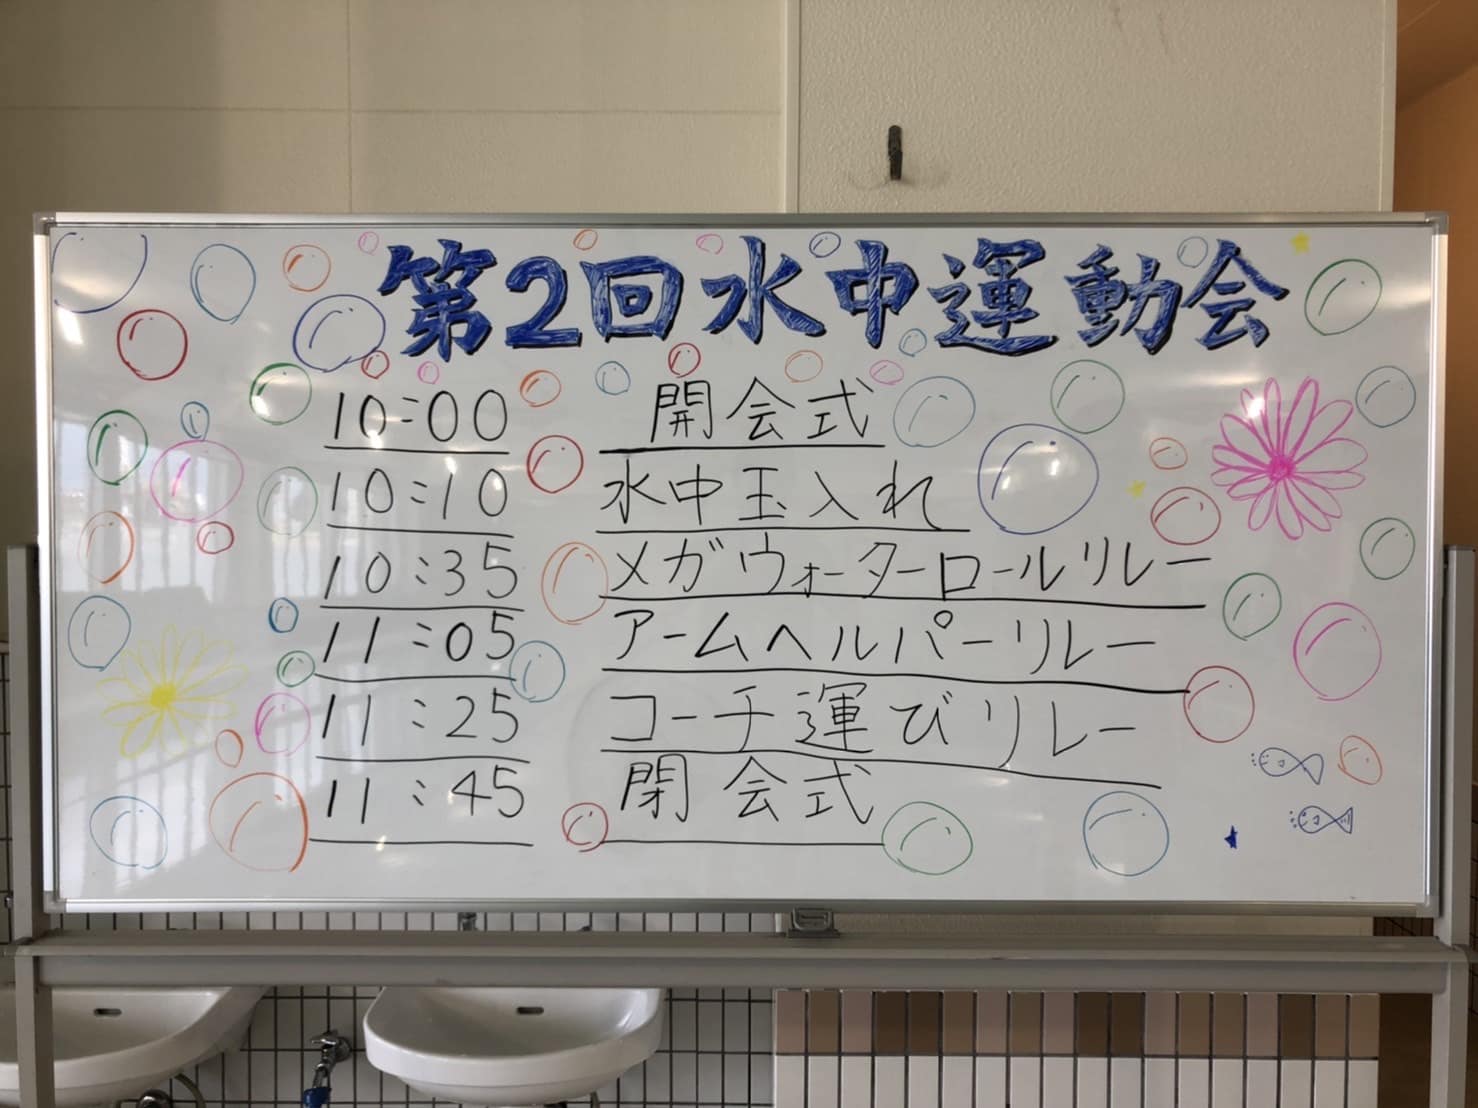 第2回水中運動会
10:00 開会式
10:10 水中玉入れ
10:35 メガウォーターロールリレー
11:05 アームヘルパーリレー
11:25 コーチ運びリレー
11:45 閉会式